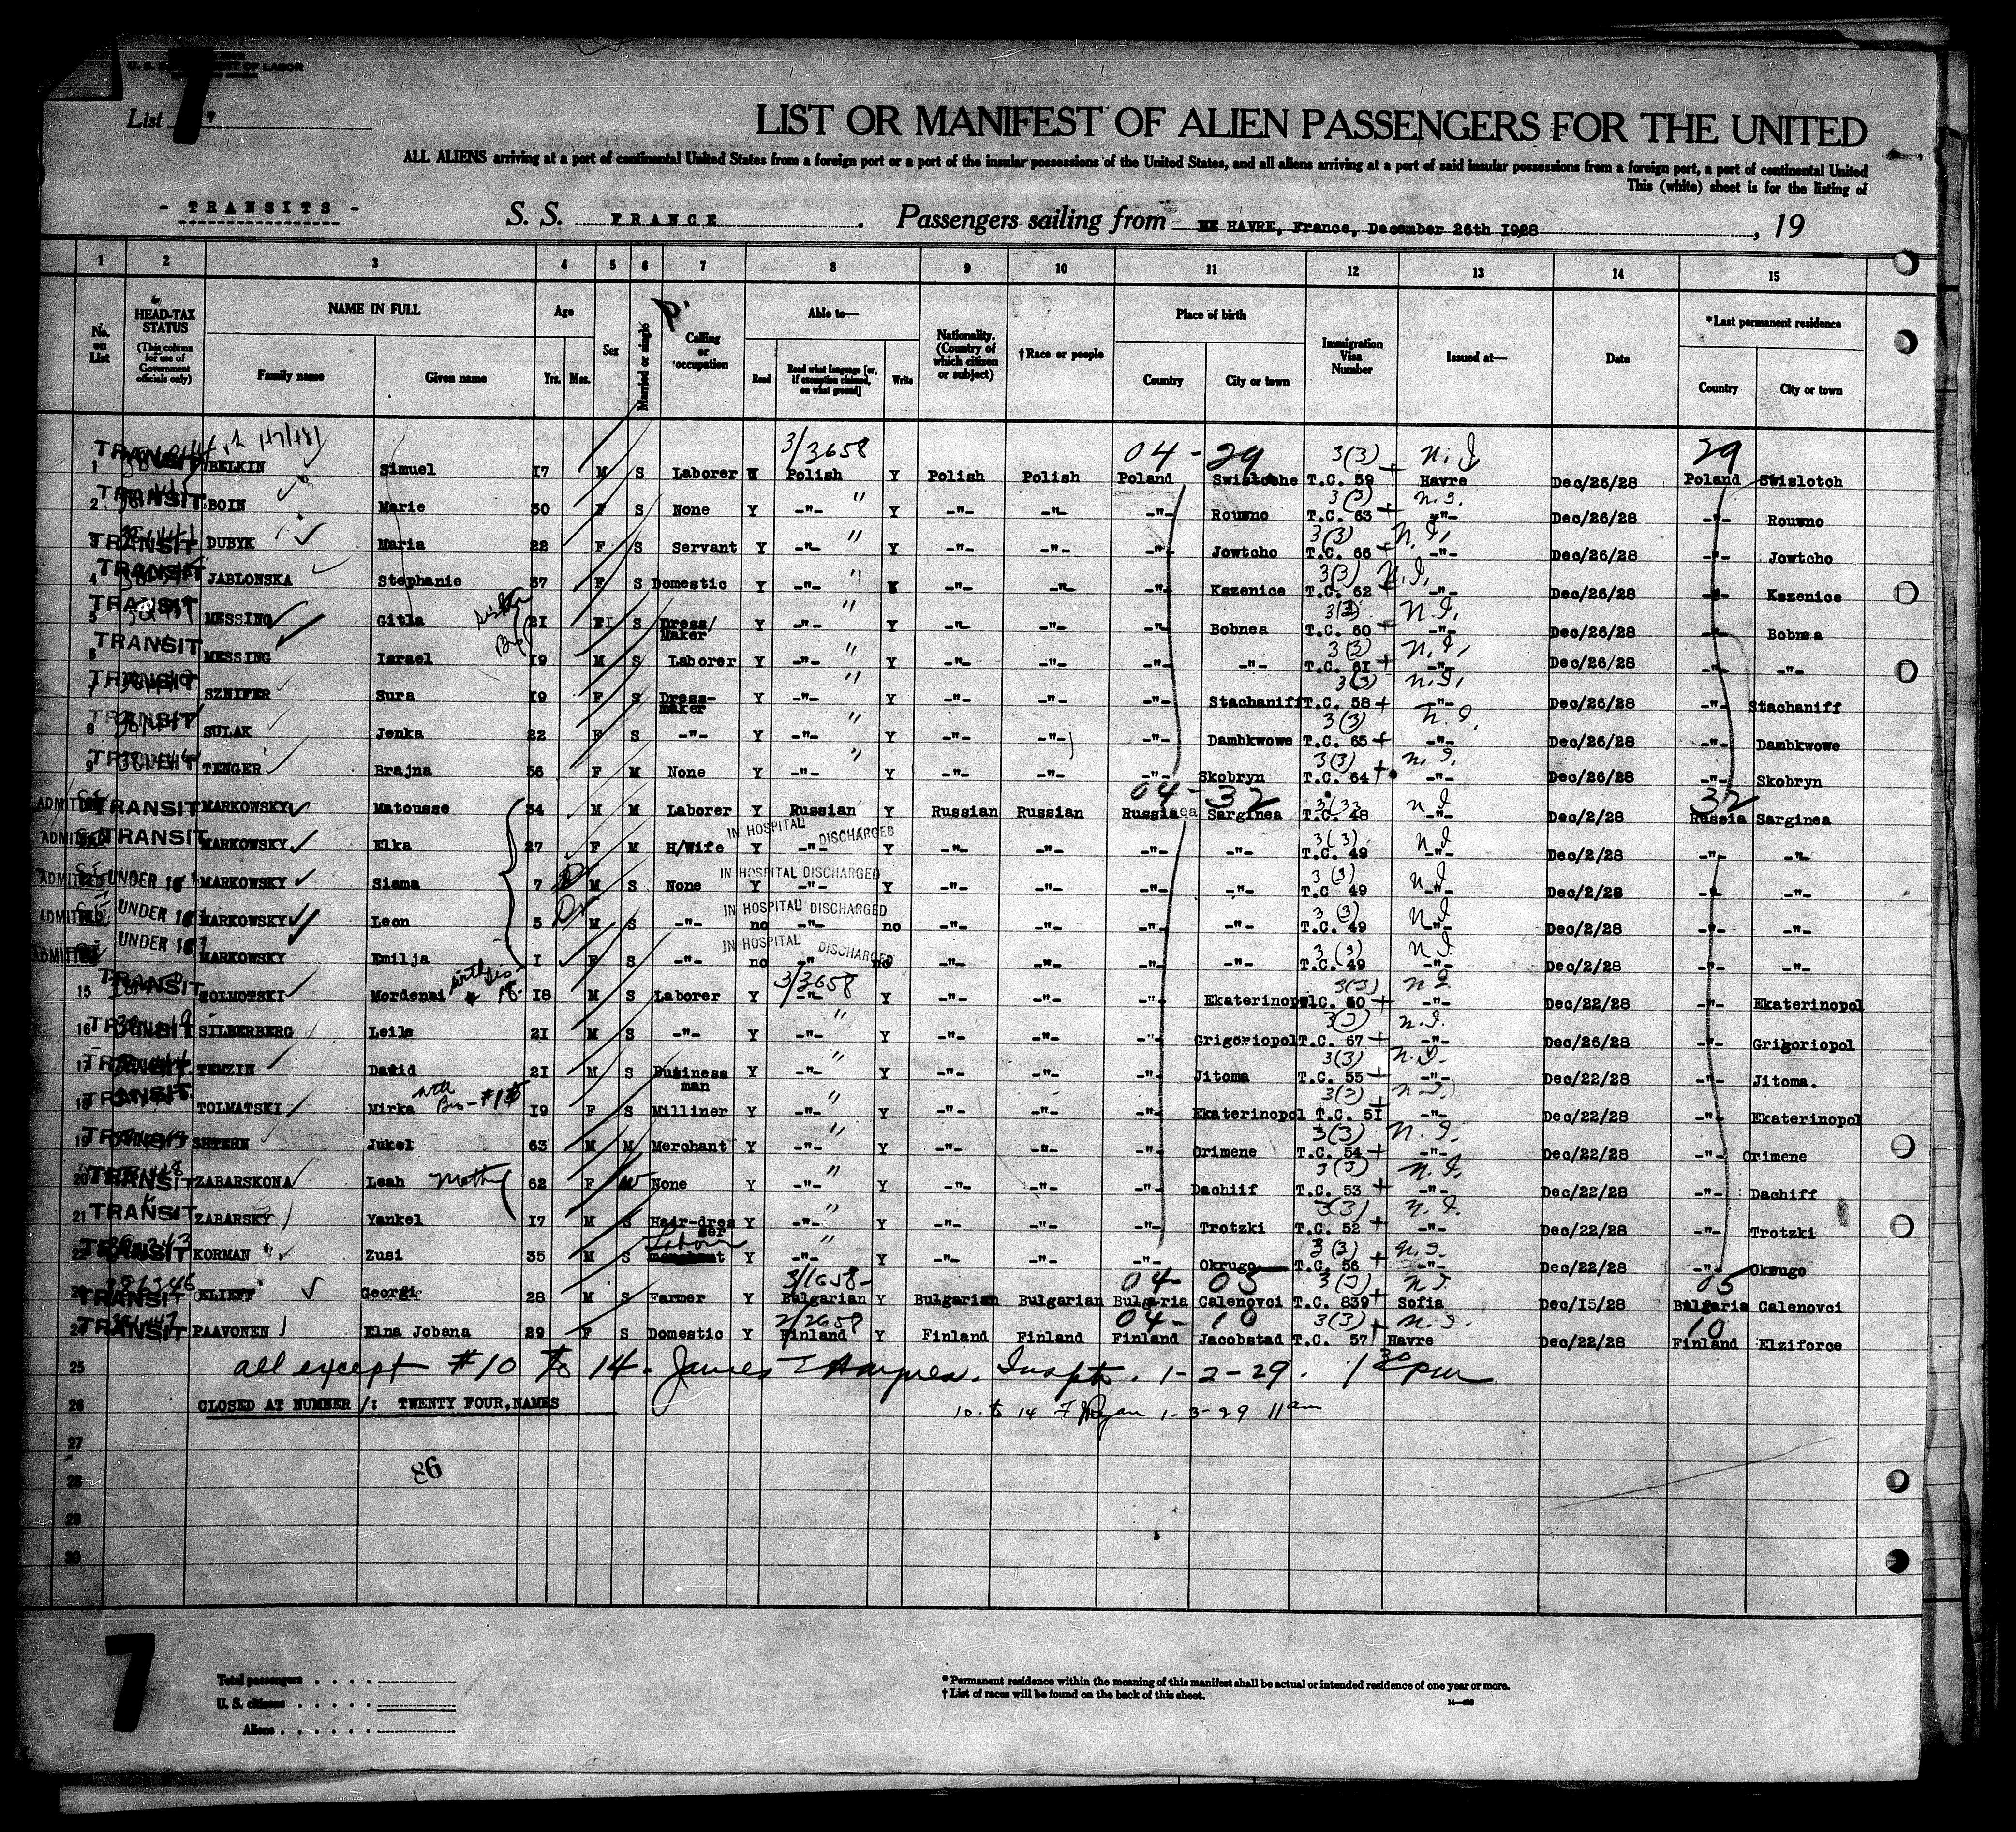 U. S. DEPARTMENT OF LABOR
List 7
LIST OR MANIFEST OF ALIEN PASSENGERS FOR THE UNITED
ALL ALIENS arriving at a port of continental United States from a foreign port or a port of the insular possessions of the United States, and all aliens arriving at a port of said insular possessions from a foreign port, a port of continental United
This (white) sheet is for the listing of
- TRANSITS -
S. S. FRANCE. Passengers sailing from HAVRE, France, December 26th 1928, 19
1 2 3 4 5 6 7 8 9 10 11 12 13 14 15
No. on List
HEAD-TAX STATUS (This column for use of Government officials only)
NAME IN FULL Family name Given name
Age Yrs. Mos.
Sex
Married or single
Calling or occupation
Able to— Read Read what language [or, if exemption claimed, on what ground] Write
Nationality. (Country of which citizen or subject)
†Race or people
Place of birth Country City or town
Immigration Visa Number
Issued at—
Date
*Last permanent residence Country City or town
3/3658 04-29 3(3) N.I. 29
1 TRANSIT BELKIN Simuel 17 M S Laborer Polish Y Polish Polish Poland Swisloche T.C. 59 Havre Dec/26/28 Poland Swislotch
2 TRANSIT BOIN Marie 30 F S None Y -"- Y -"- -"- -"- Rouwno T.C. 63 -"- Dec/26/28 -"- Rouwno
3 TRANSIT DUBYK Maria 22 F S Servant Y -"- Y -"- -"- -"- Jowtcho T.C. 66 -"- Dec/26/28 -"- Jowtcho
4 TRANSIT JABLONSKA Stephanie 37 F S Domestic Y -"- -"- -"- -"- Kszenice T.C. 62 -"- Dec/26/28 -"- Kszenice
5 TRANSIT MESSING Gitla 21 F S Dress/Maker Y -"- Y -"- -"- -"- Bobnea T.C. 60 -"- Dec/26/28 -"- Bobnea
6 TRANSIT MESSING Israel 19 M S Laborer Y -"- Y -"- -"- -"- -"- T.C. 61 -"- Dec/26/28 -"- -"-
7 TRANSIT SZNIFER Sura 19 F S Dress-maker Y -"- Y -"- -"- -"- Stachaniff T.C. 58 -"- Dec/26/28 -"- Stachaniff
8 TRANSIT SULAK Jenka 22 F S -"- Y -"- Y -"- -"- -"- Dambkwowe T.C. 65 -"- Dec/26/28 -"- Dambkwowe
9 TRANSIT TENGER Brajna 56 F M None Y -"- Y -"- -"- -"- Skobryn T.C. 64 -"- Dec/26/28 -"- Skobryn
04-32 32
ADMITTED TRANSIT MARKOWSKY Matousse 34 M M Laborer Y Russian Y Russian Russian Russia Sarginea T.C. 48 Dec/2/28 Russia Sarginea
ADMITTED TRANSIT MARKOWSKY Elka 27 F M H/Wife Y -"- IN HOSPITAL DISCHARGED Y -"- -"- -"- -"- T.C. 49 -"- Dec/2/28 -"- -"-
ADMITTED UNDER 16 MARKOWSKY Siama 7 M S None Y -"- IN HOSPITAL DISCHARGED Y -"- -"- -"- -"- T.C 49 -"- Dec/2/28 -"- -"-
ADMITTED UNDER 16 MARKOWSKY Leon 5 M S -"- no -"- IN HOSPITAL DISCHARGED no -"- -"- -"- -"- T.C. 49 -"- Dec/2/28 -"- -"-
ADMITTED UNDER 16 MARKOWSKY Emilja 1 F S -"- no -"- IN HOSPITAL DISCHARGED no -"- -"- -"- -"- T.C. 49 -"- Dec/2/28 -"- -"-
3/3658
15 TRANSIT TOLMOTSKI Mordenai 18 M S Laborer Y -"- Y -"- -"- -"- Ekaterinopol T.C. 50 -"- Dec/22/28 -"- Ekaterinopol
16 TRANSIT SILBERBERG Leile 21 M S -"- Y -"- Y -"- -"- -"- Grigoriopol T.C. 67 -"- Dec/26/28 -"- Grigoriopol
17 TRANSIT TEMZIN David 21 M S Business man Y -"- Y -"- -"- -"- Jitoma T.C. 55 -"- Dec/22/28 -"- Jitoma.
18 TRANSIT TOLMATSKI Mirka with Bro-#15 19 F S Milliner Y -"- Y -"- -"- -"- Ekaterinopol T.C. 51 -"- Dec/22/28 -"- Ekaterinopol
19 TRANSIT SHTERN Jukel 63 M M Merchant Y -"- Y -"- -"- -"- Orimene T.C. 54 -"- Dec/22/28 -"- Orimene
20 TRANSIT ZABARSKONA Leah Mother 62 F W None Y -"- Y -"- -"- -"- Dachiif T.C. 53 -"- Dec/22/28 -"- Dachiff
21 TRANSIT ZABARSKY Yankel 17 M S Hair-dresser Y -"- Y -"- -"- -"- Trotzki T.C. 52 -"- Dec/22/28 -"- Trotzki
22 TRANSIT KORMAN Zusi 35 M S Laborer Y -"- Y -"- -"- -"- Okrugo T.C. 56 -"- Dec/22/28 -"- Okrugo
3/1658- 04- 05 3(3) N.I. 05
TRANSIT Georgi 28 M S Farmer Y Bulgarian Y Bulgarian Bulgarian Bulgaria Calenovci T.C. 839 Sofia Dec/15/28 Bulgaria Calenovci
2/2658 04- 10 3(3) N.I. 10
24 TRANSIT PAAVONEN Elna Jobana 29 F S Domestic Y Finland Y Finland Finland Finland Jacobstad T.C. 57 Havre Dec/22/28 Finland Elziforce
25 all except #10 to 14. James Inspt. 1-2-29. 1 30 pm
26 CLOSED AT NUMBER /: TWENTY FOUR, NAMES 10 to 14 1-3-29 11 am
27
28 86
29
30
7
Total passengers
U. S. citizens
Aliens
*Permanent residence within the meaning of this manifest shall be actual or intended residence of one year or more.
†List of races will be found on the back of this sheet.